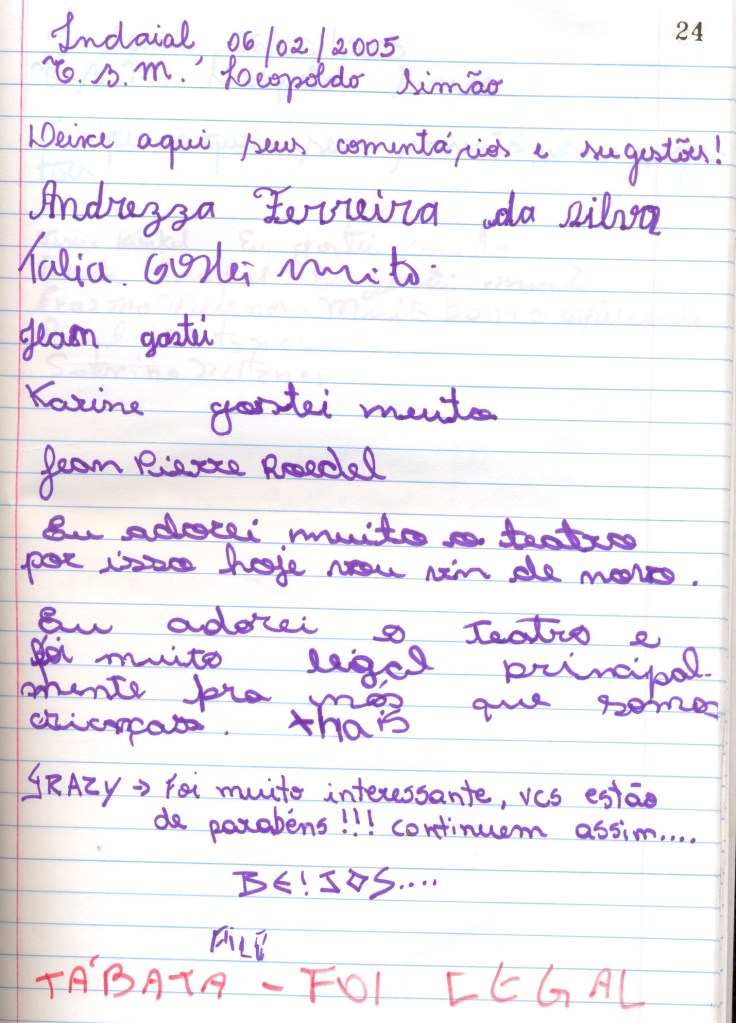 24
Indaial 06/02/2005
E.B.M. Leopoldo Simão
Deixe aqui seus comentários e sugestões!
Andrezza Ferreira da Silva
Talia. Gostei muito.
Jean gostei
Karine gostei muito
Jean Pierre Roedel
Eu adorei muito o teatro
por isso hoje vou vin de novo.
Eu adorei o teatro e
foi muito legal principal-
mente pra nós que somos
crianças. thais
GRAZY → Foi muito interessante, vcs estão
de parabéns!!! continuem assim....
BEIJOS....
TÁBATA - FOI LEGAL